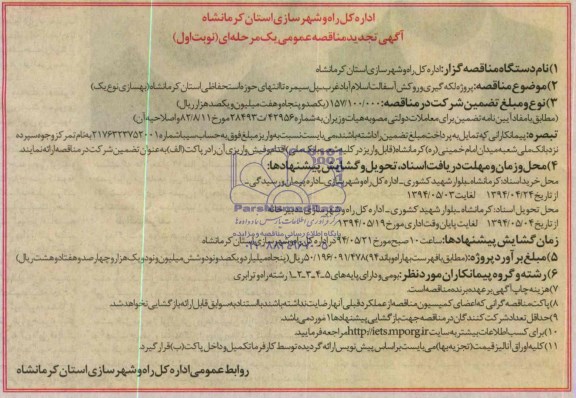 اداره کل راه و شهرسازی استان کرمانشاه
آگهی تجدید مناقصه عمومی یک مرحله ای (نوبت اول)
۱) نام دستگاه مناقصه گزار: اداره کل راه و شهرسازی استان کرمانشاه
۲) موضوع مناقصه: پروژه لکه گیری و روکش آسفالت اسلام آباد غرب _ پل سیمره تا انتهای حوزه استحفاظی استان کرمانشاه (بهسازی نوع یک)
۳) نوع و مبلغ تضمین شرکت در مناقصه: ۱۵۷/۱۰۰/۰۰۰ (یکصد و پنجاه و هفت میلیون و یکصد هزار ریال)
(مطابق با مفاد آیین نامه تضمین برای معاملات دولتی مصوبه هیات وزیران به شماره ۴۲۹۵۶/ت ۲۸۴۹۳ مورخ ۸۲/۸/۱۱ و اصلاحیه آن)
تبصره: پیمانکارانی که تمایل به پرداخت مبلغ تضمین را داشته باشند، می بایست نسبت به واریز مبلغ فوق به حساب سیبا شماره ۲۱۷۶۳۲۲۷۵۲۰۰۱ به نام تمرکز وجوه سپرده
نزد بانک ملی شعبه میدان امام خمینی (ره) کرمانشاه (قابل واریز در کلیه شعب بانک ملی) اقدام و فیش واریزی آن را در پاکت (الف) به عنوان تضمین شرکت در مناقصه ارائه نمایند.
۴) محل و زمان و مهلت دریافت اسناد، تحویل و گشایش پیشنهادها:
محل خرید اسناد: کرمانشاه _ بلوار شهید کشوری _ اداره کل راه و شهرسازی _ اداره پیمان و رسیدگی _
از تاریخ ۱۳۹۴/۰۴/۲۴ لغایت ۱۳۹۴/۰۵/۰۳
محل تحویل اسناد: کرمانشاه _ بلوار شهید کشوری _ اداره کل راه و شهرسازی _ دبیرخانه
از تاریخ ۱۳۹۴/۰۵/۰۴ لغایت پایان وقت اداری مورخ ۱۳۹۴/۰۵/۱۹
زمان گشایش پیشنهادها: ساعت ۱۰ صبح مورخ ۹۴/۰۵/۲۱ در اداره کل راه و شهرسازی استان کرمانشاه
۵) مبلغ برآورد پروژه: (مطابق با فهرست بهاء راه و باند ۹۴) ۵۰/۱۹۶/۰۹۱/۴۷۸ ریال (پنجاه میلیارد و یکصد و نود و شش میلیون و نود و یک هزار و چهارصد و هفتاد و هشت ریال)
۶) رشته و گروه پیمانکاران مورد نظر: بومی و دارای پایه های ۵_۴_۳_۲_۱ رشته راه و ترابری
۷) هزینه چاپ آگهی بر عهده برنده مناقصه است.
۸) پاکت مناقصه گرانی که اعضای کمیسیون مناقصه از عملکرد قبلی آنها رضایت نداشته باشند با استناد به سوابق قابل ارائه بازگشایی نخواهد شد.
۹) حداقل تعداد شرکت کنندگان در مناقصه جهت بازگشایی پیشنهادها ۱ مورد می باشد.
۱۰) برای کسب اطلاعات بیشتر به سایت http://iets.mporg.ir مراجعه فرمایید.
۱۱) کلیه اوراق آنالیز قیمت (تجزیه بها) می بایست بر اساس پیش نویس ارائه گردیده توسط کارفرما تکمیل و داخل پاکت (ب) قرار گیرد.
روابط عمومی اداره کل راه و شهرسازی استان کرمانشاه